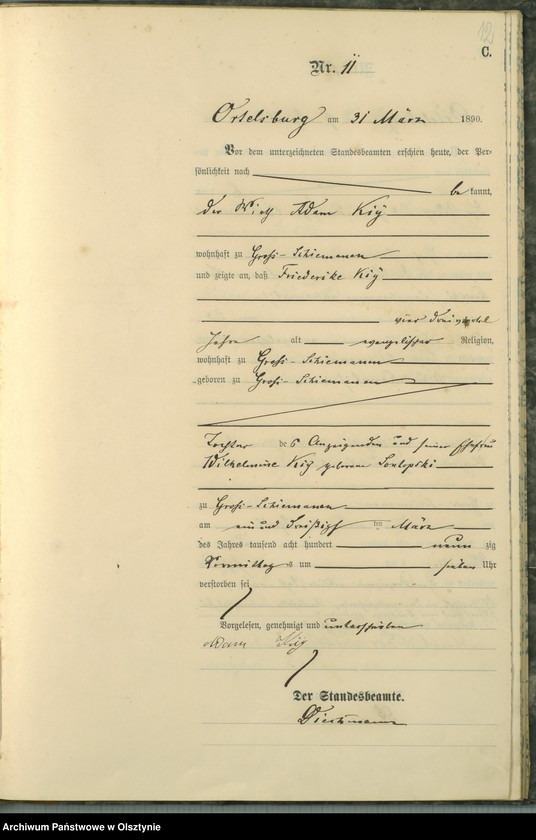 12
C.
Nr. 11
Ortelsburg am 31 März 1890.
Vor dem unterzeichneten Standesbeamten erschien heute, der Per-
sönlichkeit nach
be kannt,
der Wirth Adam Kiÿ
wohnhaft zu Groß-Schiemanen
und zeigte an, daß Friederike Kiÿ
vier dreiviertel
Jahre alt evangelischer Religion,
wohnhaft zu Groß-Schiemanen
geboren zu Groß-Schiemanen
Tochter des Anzeigenden und seiner Ehefrau
Wilhelmine Kiÿ geborene
zu Groß-Schiemanen
am ein und dreißigsten März
des Jahres tausend acht hundert neun zig
Vormittags um sieben Uhr
verstorben sei
Vorgelesen, genehmigt und unterschrieben
Adam Kiÿ
Der Standesbeamte.
Dieckmann
Archiwum Państwowe w Olsztynie